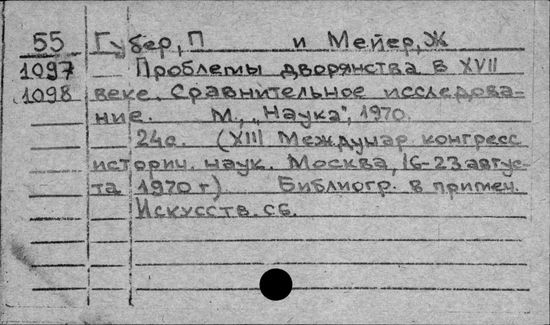 55 Губер, П и Мейер, Ж
1097 Проблемы дворянства в XVII
1098 веке. Сравнительное исследова-
ние. М., „Наука", 1970.
24с. (XIII Междунар конгресс
историч. наук. Москва, 16-23 авгус-
та 1970 г) Библиогр. в примеч.
Искусств. сб.